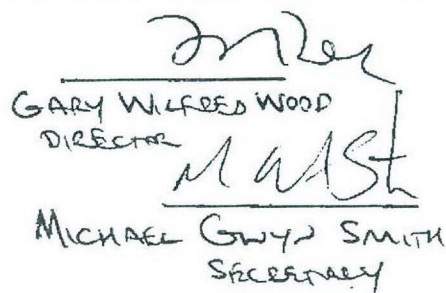 GARY WILFRED WOOD
DIRECTOR
MICHAEL GWYN SMITH
SECRETARY